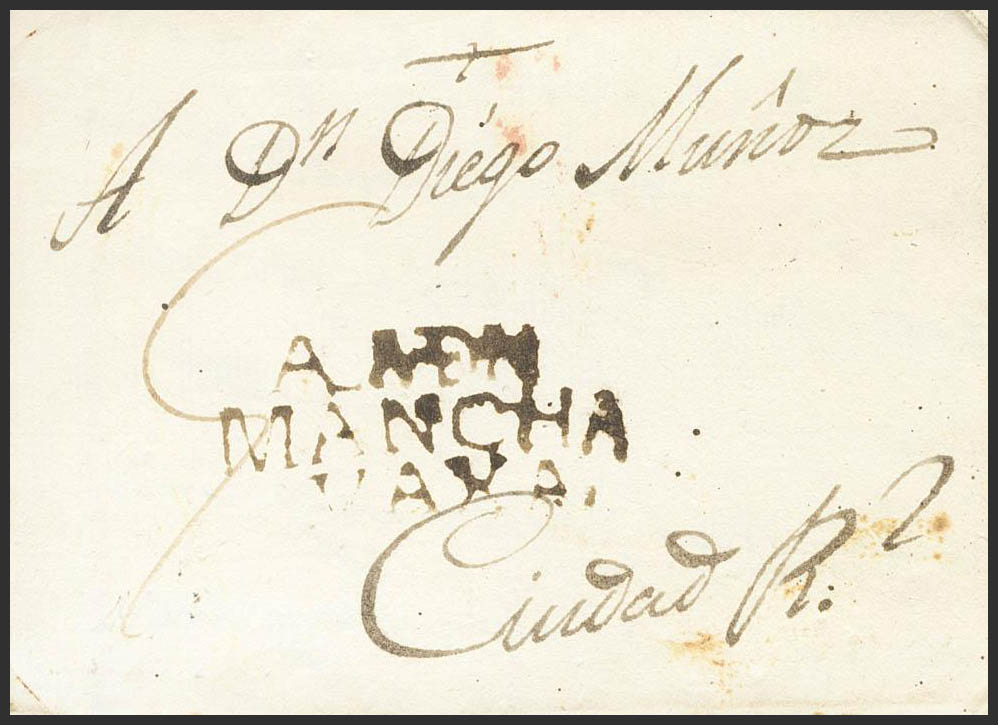 A Dn Diego Muñoz
MANCHA
Ciudad R.l